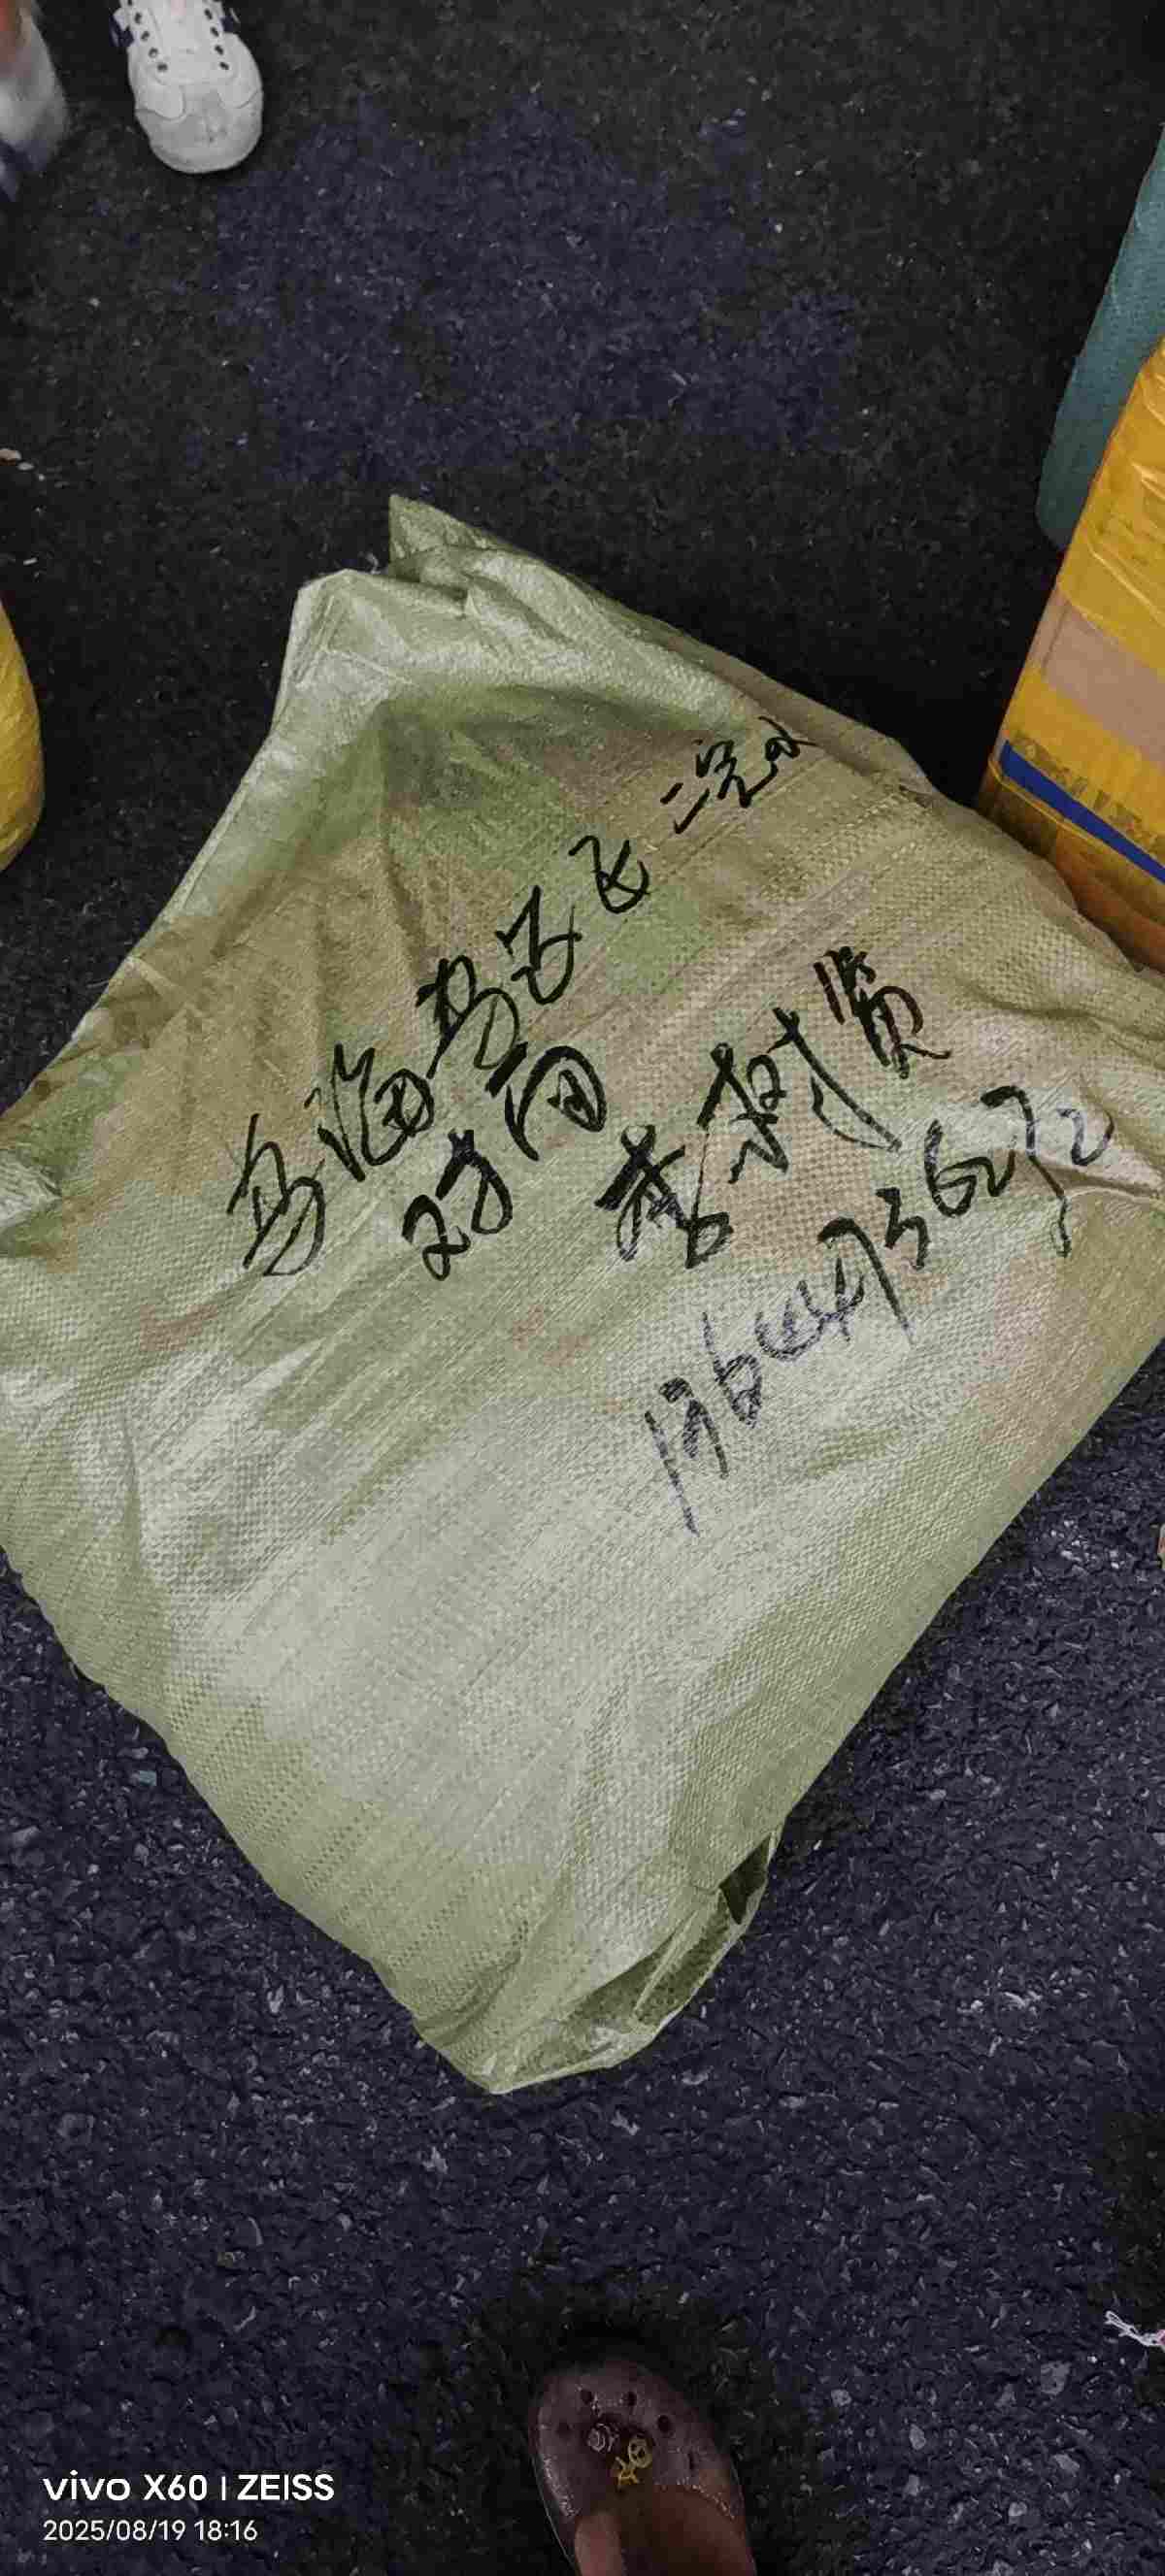 乌海乌云飞 二완
对面 李树贤
13644736272
vivo X60 | ZEISS
2025/08/19 18:16